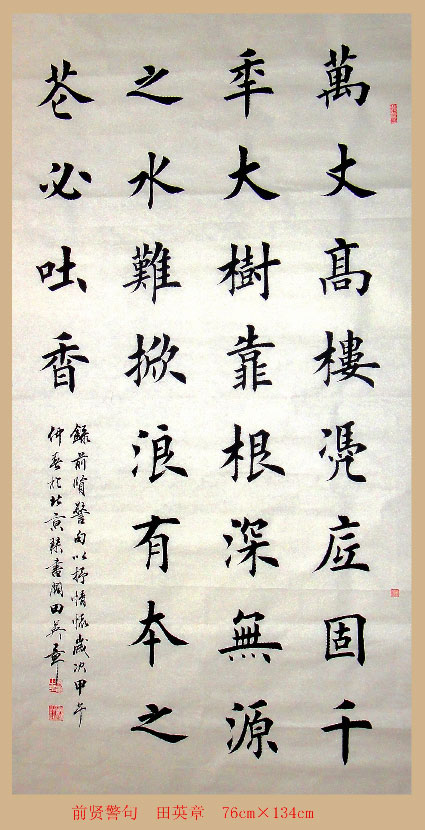 萬丈高樓凴底固千
年大樹靠根深無源
之水難掀浪有本之
花必吐香
錄前賢警句以抒情懷歲次甲午
仲春於北京
書閣田英章
前贤警句 田英章 76cm×134cm